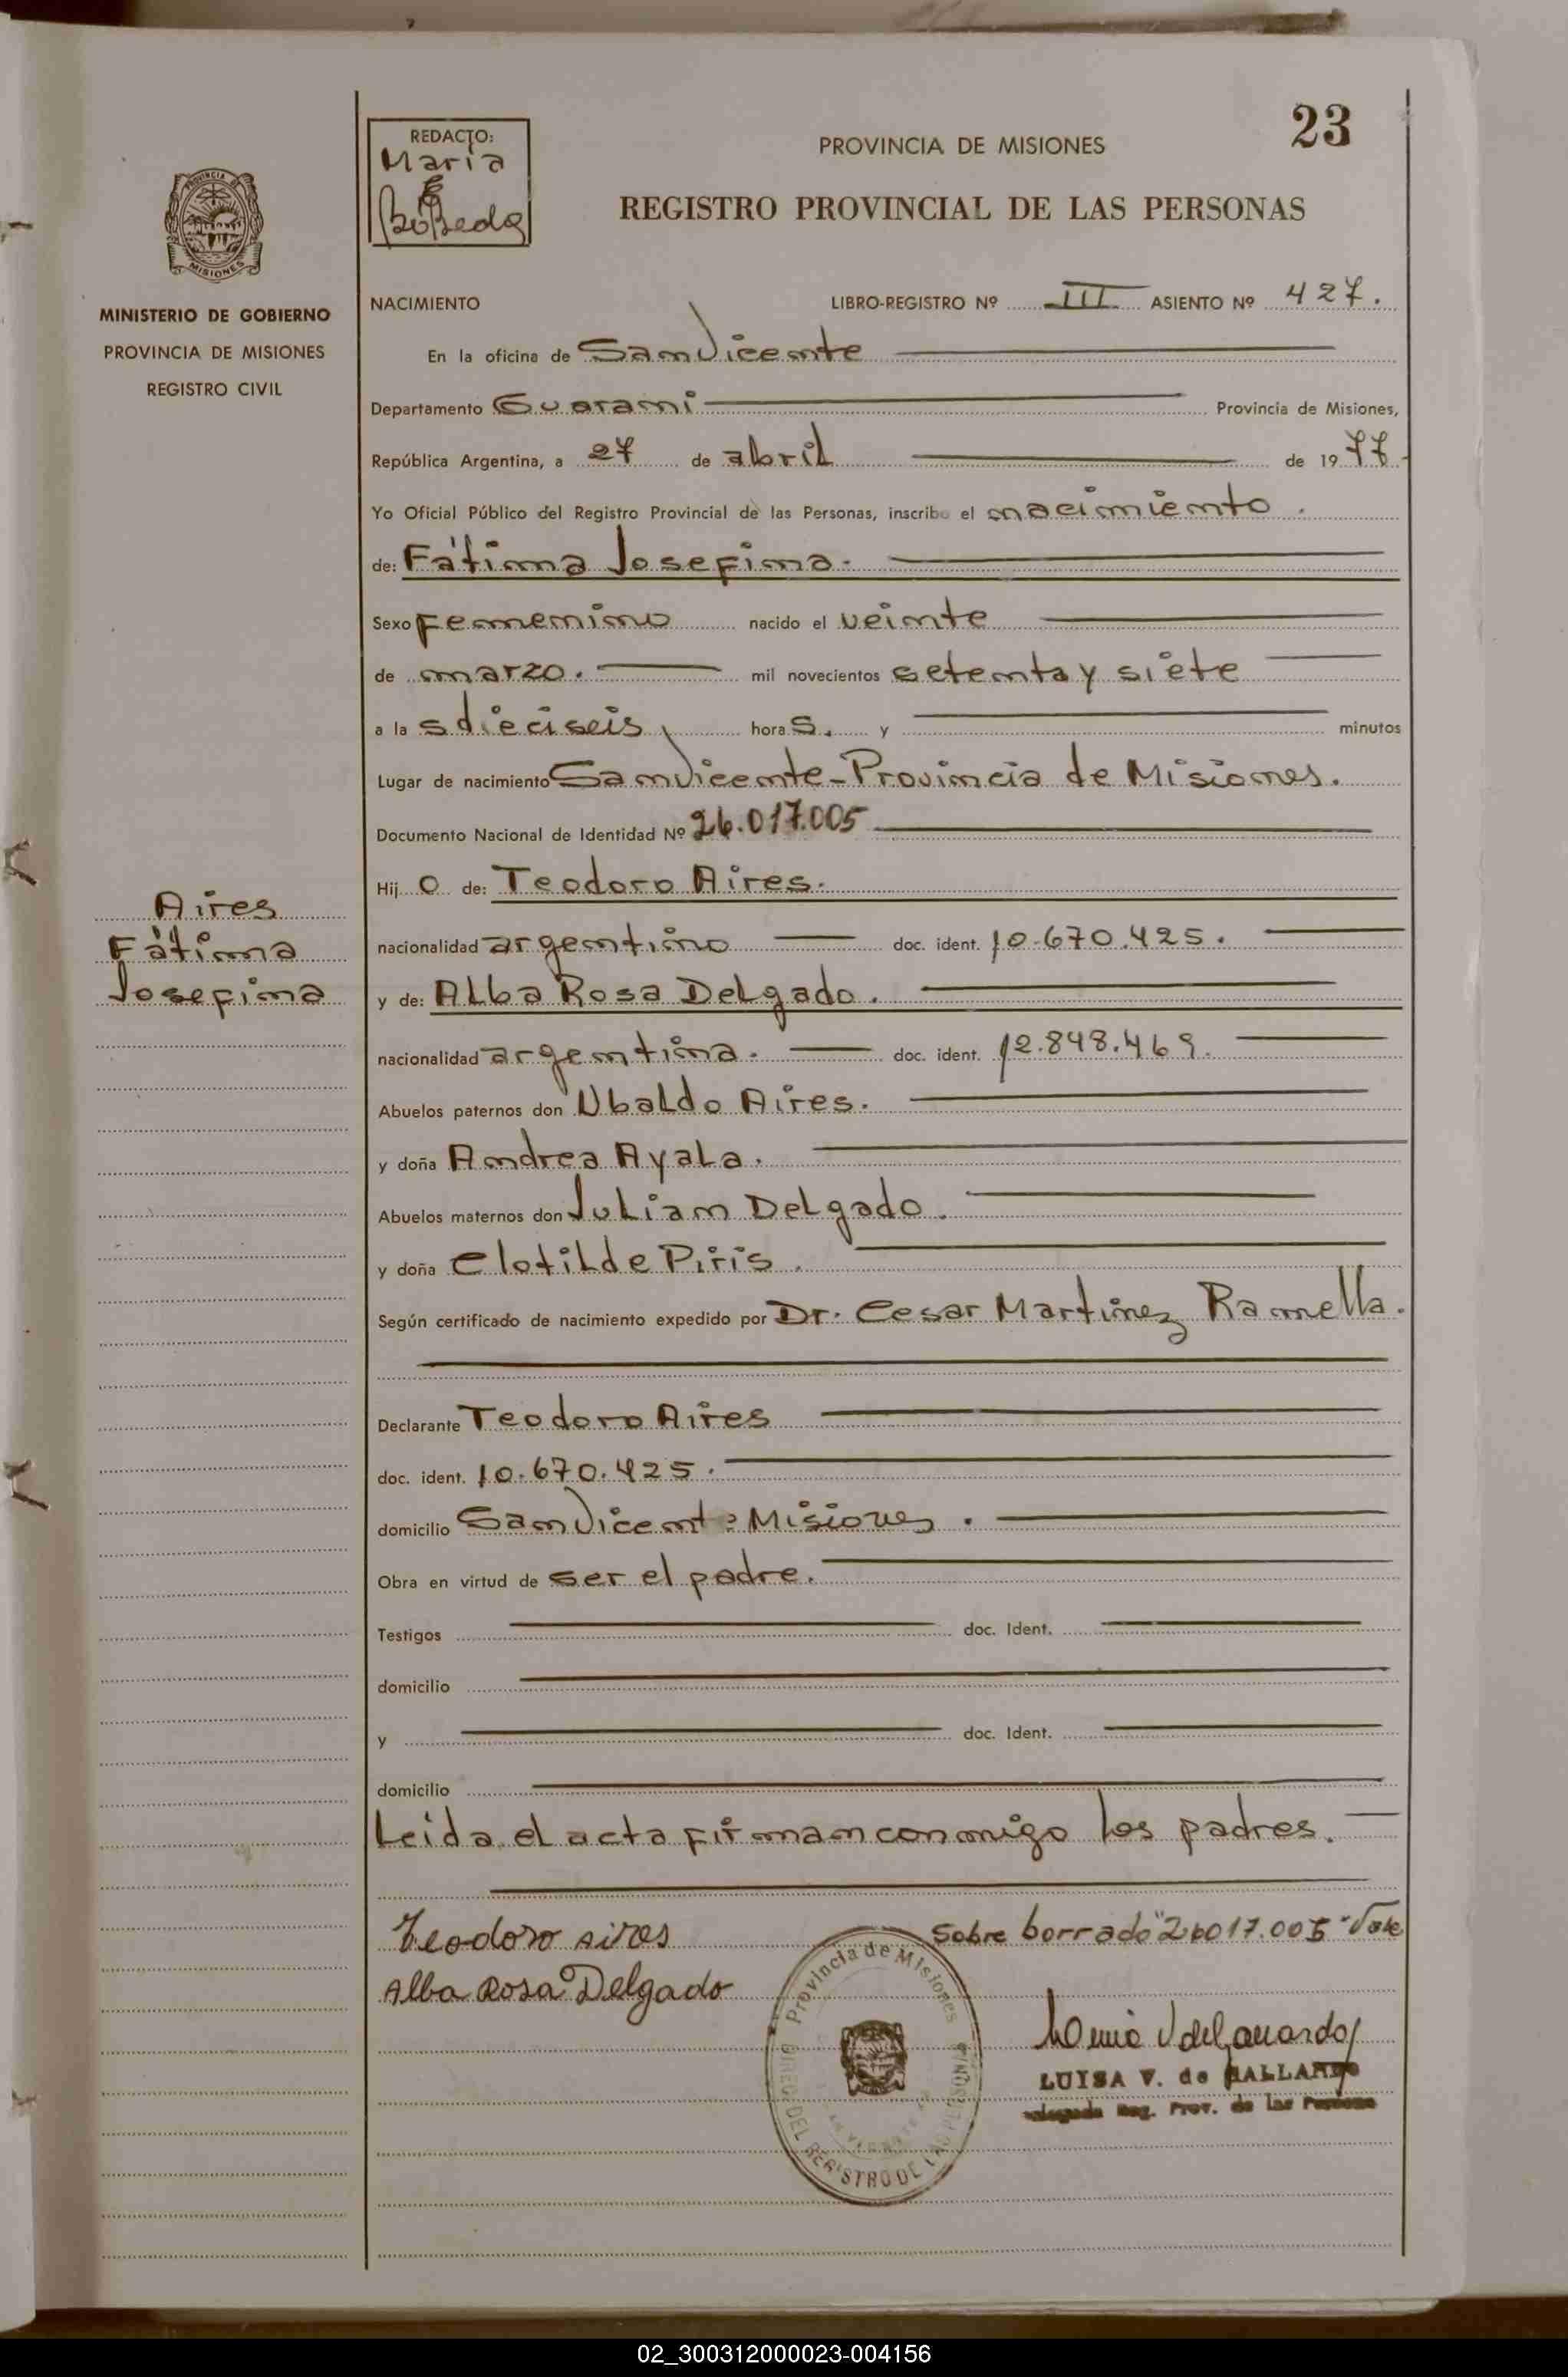 23
REDACTO:
Maria
E
BóBeda
PROVINCIA DE MISIONES
REGISTRO PROVINCIAL DE LAS PERSONAS
PROVINCIA DE
MISIONES
MINISTERIO DE GOBIERNO
PROVINCIA DE MISIONES
REGISTRO CIVIL
NACIMIENTO LIBRO-REGISTRO Nº III ASIENTO Nº 427.
En la oficina de San Vicente
Departamento Guarani Provincia de Misiones,
República Argentina, a 27 de abril de 1977
Yo Oficial Público del Registro Provincial de las Personas, inscribo el nacimiento.
de: Fátima Josefina.
Sexo femenino nacido el veinte
de marzo. mil novecientos setenta y siete
a la s dieciseis, hora s. y minutos
Lugar de nacimiento San Vicente - Provincia de Misiones.
Documento Nacional de Identidad Nº 26.017.005
Hij o de: Teodoro Aires.
nacionalidad argentino doc. ident. 10.670.425.
y de: Alba Rosa Delgado.
nacionalidad argentina. doc. ident. 12.848.469.
Abuelos paternos don Ubaldo Aires.
y doña Andrea Ayala.
Abuelos maternos don Julian Delgado.
y doña Clotilde Piris.
Según certificado de nacimiento expedido por Dr. Cesar Martinez Ramella.
Declarante Teodoro Aires
doc. ident. 10.670.425.
domicilio San Vicente Misiones.
Obra en virtud de ser el padre.
Testigos doc. Ident.
domicilio
y doc. Ident.
domicilio
Leida el acta firman conmigo los padres.
Aires
Fátima
Josefina
Teodoro Aires
Sobre borrado "26017.005" Vale
Alba Rosa Delgado
Provincia de Misiones
DEL REGISTRO DE LAS PERSONAS
LUISA V. de GALLARDO
Delegada Reg. Prov. de las Personas
02_300312000023-004156